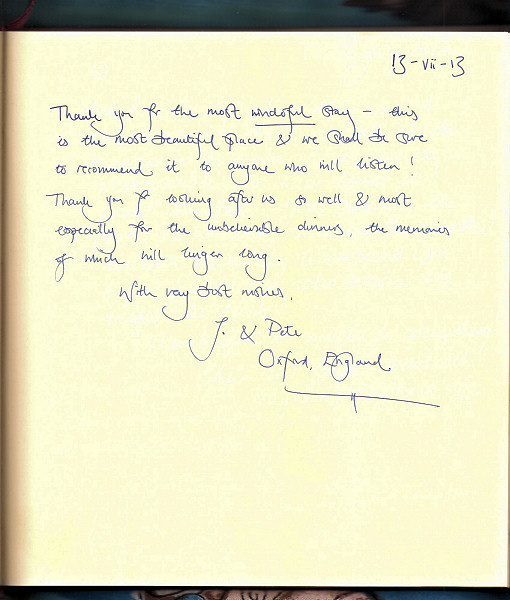 13-vii-13
Thank you for the most wonderful stay – this
is the most beautiful place & we shall be sure
to recommend it to anyone who will listen!
Thank you for looking after us so well & most
especially for the unbelievable dinners, the memories
of which will linger long.
With very best wishes,
J. & Pete
Oxford, England